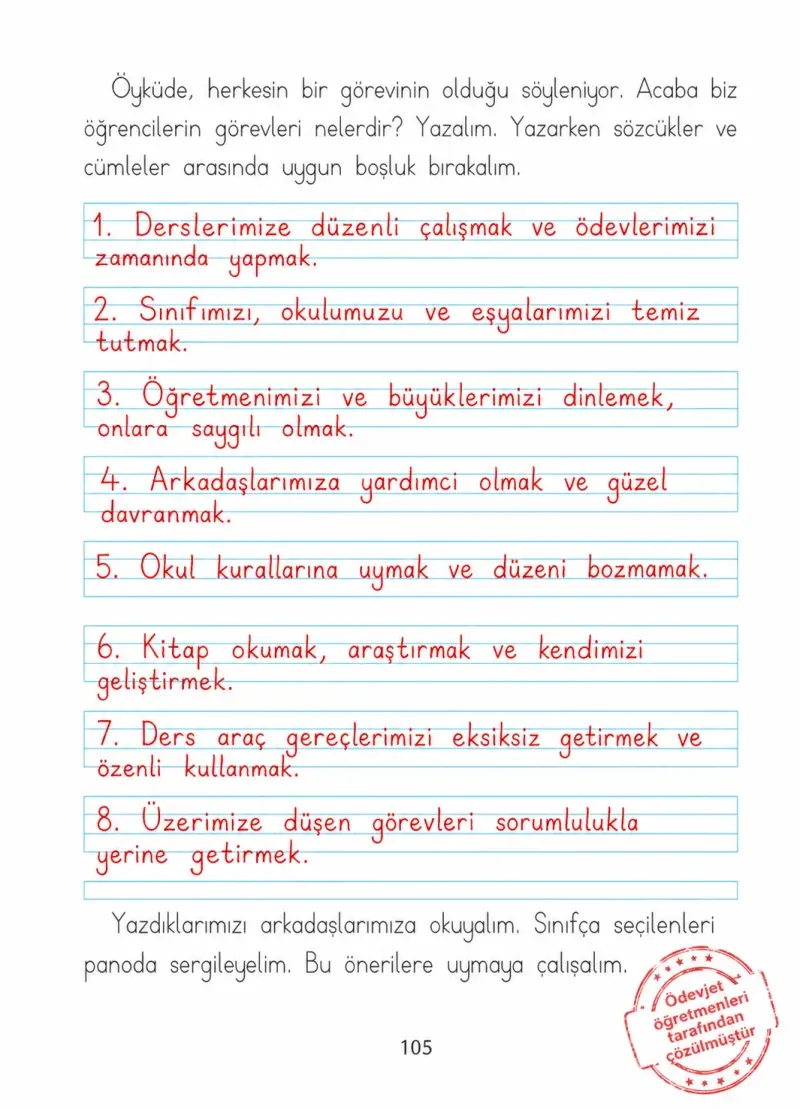 Öyküde, herkesin bir görevinin olduğu söyleniyor. Acaba biz
öğrencilerin görevleri nelerdir? Yazalım. Yazarken sözcükler ve
cümleler arasında uygun boşluk bırakalım.
1. Derslerimize düzenli çalışmak ve ödevlerimizi
zamanında yapmak.
2. Sınıfımızı, okulumuzu ve eşyalarımızi temiz
tutmak.
3. Öğretmenimizi ve büyüklerimizi dinlemek,
onlara saygılı olmak.
4. Arkadaşlarımıza yardımci olmak ve güzel
davranmak.
5. Okul kurallarına uymak ve düzeni bozmamak.
6. Kitap okumak, araştırmak ve kendimizi
geliştirmek.
7. Ders araç gereçlerimizi eksiksiz getirmek ve
özenli kullanmak.
8. Üzerimize düşen görevleri sorumlulukla
yerine getirmek.
Yazdıklarımızı arkadaşlarımıza okuyalım. Sınıfça seçilenleri
panoda sergileyelim. Bu önerilere uymaya çalışalım.
Ödevjet
öğretmenleri
tarafından
çözülmüştür
105